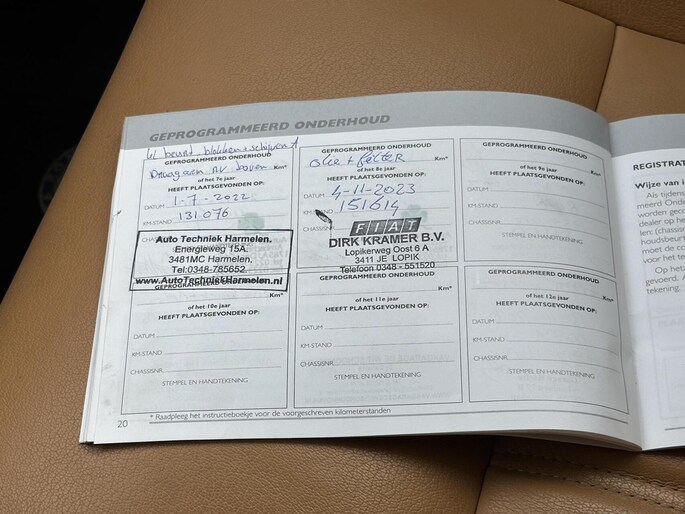 GEPROGRAMMEERD ONDERHOUD
kl beurt blokken + schijven A
GEPROGRAMMEERD ONDERHOUD
Draagarm RV boven Km*
of het 7e jaar
HEEFT PLAATSGEVONDEN OP:
DATUM 1-7-2022
KM-STAND 131.076
CHASSISNR.
Auto Techniek Harmelen.
Energieweg 15A.
3481MC Harmelen.
Tel:0348-785652.
www.AutoTechniekHarmelen.nl
GEPROGRAMMEERD ONDERHOUD
olie + filter Km*
of het 8e jaar
HEEFT PLAATSGEVONDEN OP:
DATUM 4-11-2023
KM-STAND 151614
CHASSISNR.
FIAT
DIRK KRAMER B.V.
Lopikerweg Oost 6 A
3411 JE LOPIK
Telefoon 0348 - 551520
GEPROGRAMMEERD ONDERHOUD
Km*
of het 9e jaar
HEEFT PLAATSGEVONDEN OP:
DATUM
KM-STAND
CHASSISNR.
STEMPEL EN HANDTEKENING
GEPROGRAMMEERD ONDERHOUD
Km*
of het 10e jaar
HEEFT PLAATSGEVONDEN OP:
DATUM
KM-STAND
CHASSISNR.
STEMPEL EN HANDTEKENING
GEPROGRAMMEERD ONDERHOUD
Km*
of het 11e jaar
HEEFT PLAATSGEVONDEN OP:
DATUM
KM-STAND
CHASSISNR.
STEMPEL EN HANDTEKENING
GEPROGRAMMEERD ONDERHOUD
Km*
of het 12e jaar
HEEFT PLAATSGEVONDEN OP:
DATUM
KM-STAND
CHASSISNR.
STEMPEL EN HANDTEKENING
* Raadpleeg het instructieboekje voor de voorgeschreven kilometerstanden
20
REGISTRAT
Wijze van i
Als tijdens
meerd Onde
worden geco
dealer op he
(chassisn
houdsbeurt
moet de co
Op het
gevoerd. A
tekening.